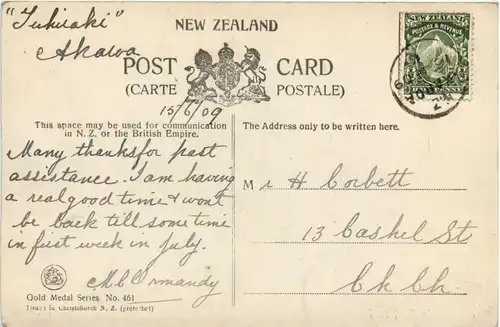 "Tuhiraki"
Akaroa
NEW ZEALAND
POST CARD
(CARTE POSTALE)
15/6/09
NEW ZEALAND
POSTAGE & REVENUE
This space may be used for communication
in N. Z. or the British Empire.
The Address only to be written here.
Many thanks for past
assistance. I am having
a real good time & wont
be back till sometime
in first week in July.
M C Ormandy
Mr H Corbett
13 Cashel St
Ch Ch.
Gold Medal Series No. 461
in Christchurch N. Z. (protected)